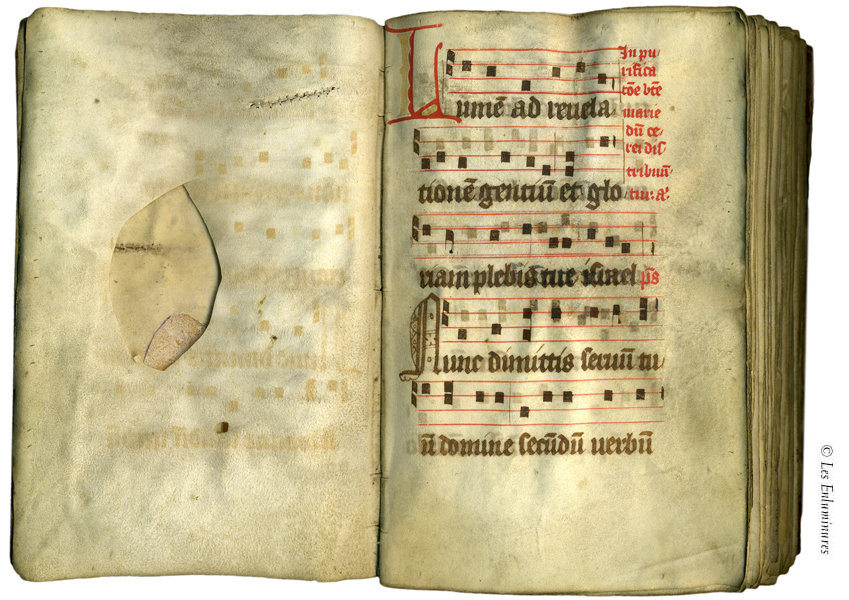 In pu/
rifica
cōe btē
marie
dū ce/
rei dis
tribuūt/
tur. Aª.
Lumē ad reuela
tionē gentiū et glo
riam plebis tue israel p̄s
Nunc dimittis seruū tu/
ū domine secūdū uerbū
© Les Enluminures